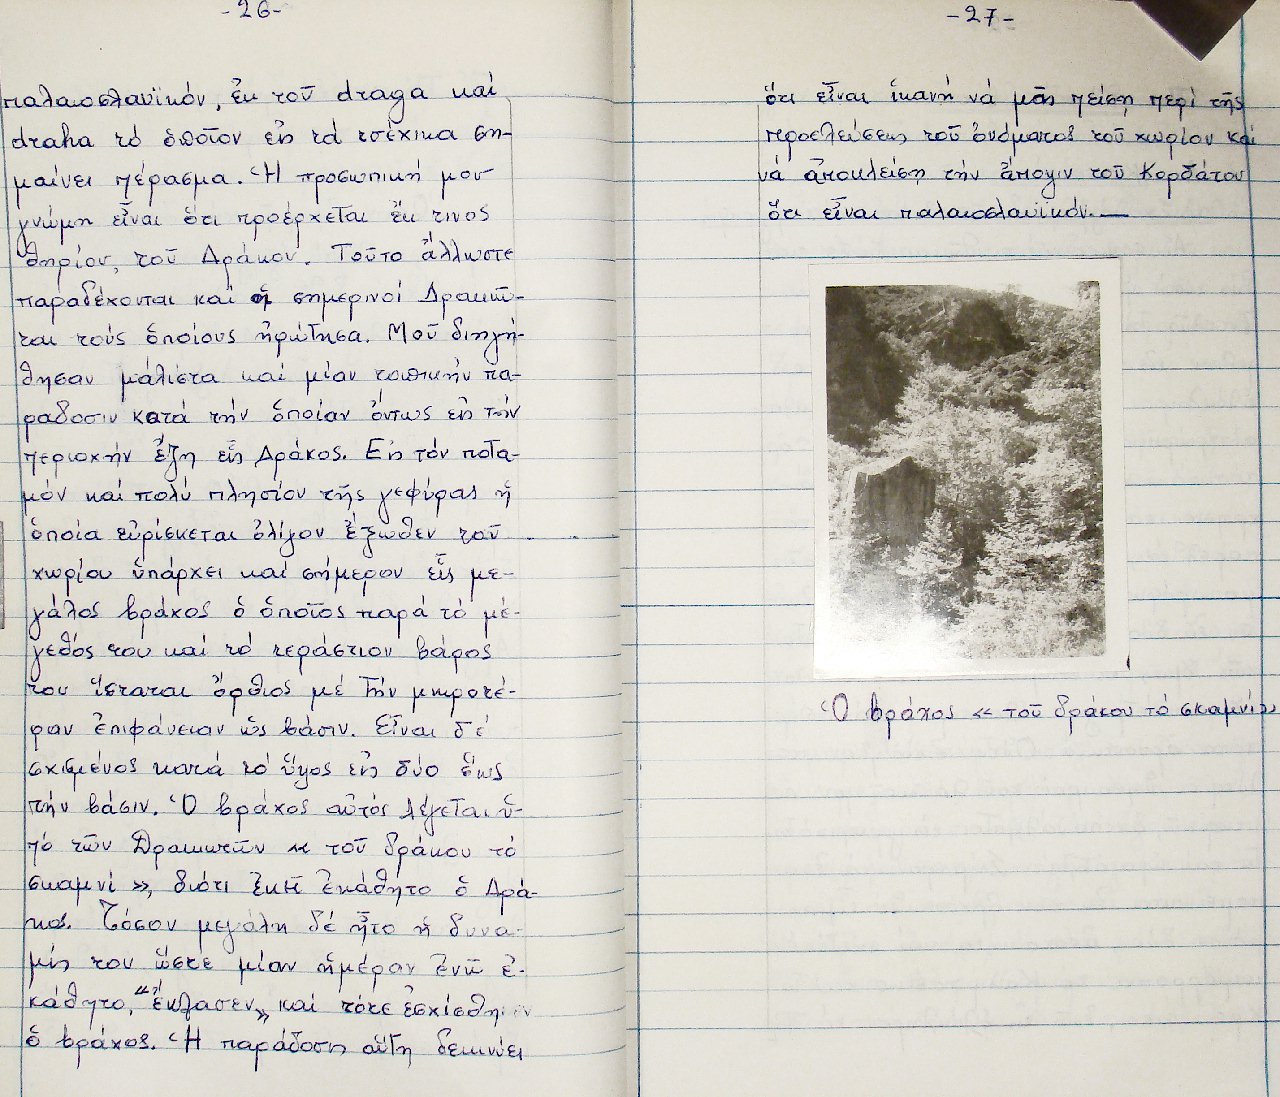 -26-
παλαιοσλαυϊκόν, ἐκ τοῦ draga καί
draha τό ὁποῖον εἰς τά τσέχικα ση-
μαίνει πέρασμα. Ἡ προσωπική μου
γνώμη εἶναι ὅτι προέρχεται ἔκ τινος
θηρίου, τοῦ Δράκου. Τοῦτο ἄλλωστε
παραδέχονται καί οἱ σημερινοί Δρακιῶ-
ται τούς ὁποίους ἠρώτησα. Μοῦ διηγή-
θησαν μάλιστα καί μίαν τοπικήν πα-
ράδοσιν κατά τήν ὁποίαν ὄντως εἰς τήν
περιοχήν ἔζη εἷς Δράκος. Εἰς τόν ποτα-
μόν καί πολύ πλησίον τῆς γεφύρας ἡ
ὁποία εὑρίσκεται ὀλίγον ἔξωθεν τοῦ
χωρίου ὑπάρχει καί σήμερον εἷς με-
γάλος βράχος ὁ ὁποῖος παρά τό μέ-
γεθός του καί τό τεράστιον βάρος
του ἵσταται ὄρθιος μέ τήν μικροτέ-
ραν ἐπιφάνειαν ὡς βάσιν. Εἶναι δέ
σχισμένος κατά τό ὕψος εἰς δύο ἕως
τήν βάσιν. Ὁ βράχος αὐτός λέγεται ὑ-
πό τῶν Δρακιωτῶν « τοῦ δράκου τό
σκαμνί », διότι ἐκεῖ ἐκάθητο ὁ Δρά-
κος. Τόσον μεγάλη δέ ἦτο ἡ δύνα-
μίς του ὥστε μίαν ἡμέραν ἐνῶ ἐ-
κάθητο, “ἔκλασεν„ καί τότε ἐσχίσθη
ὁ βράχος. Ἡ παράδοσις αὕτη δεικνύει
-27-
ὅτι εἶναι ἱκανή νά μᾶς πείσῃ περί τῆς
προελεύσεως τοῦ ὀνόματος τοῦ χωρίου καί
νά ἀποκλείσῃ τήν ἄποψιν τοῦ Κορδάτου
ὅτι εἶναι παλαιοσλαυϊκόν.—
Ὁ βράχος « τοῦ δράκου τό σκαμνί»